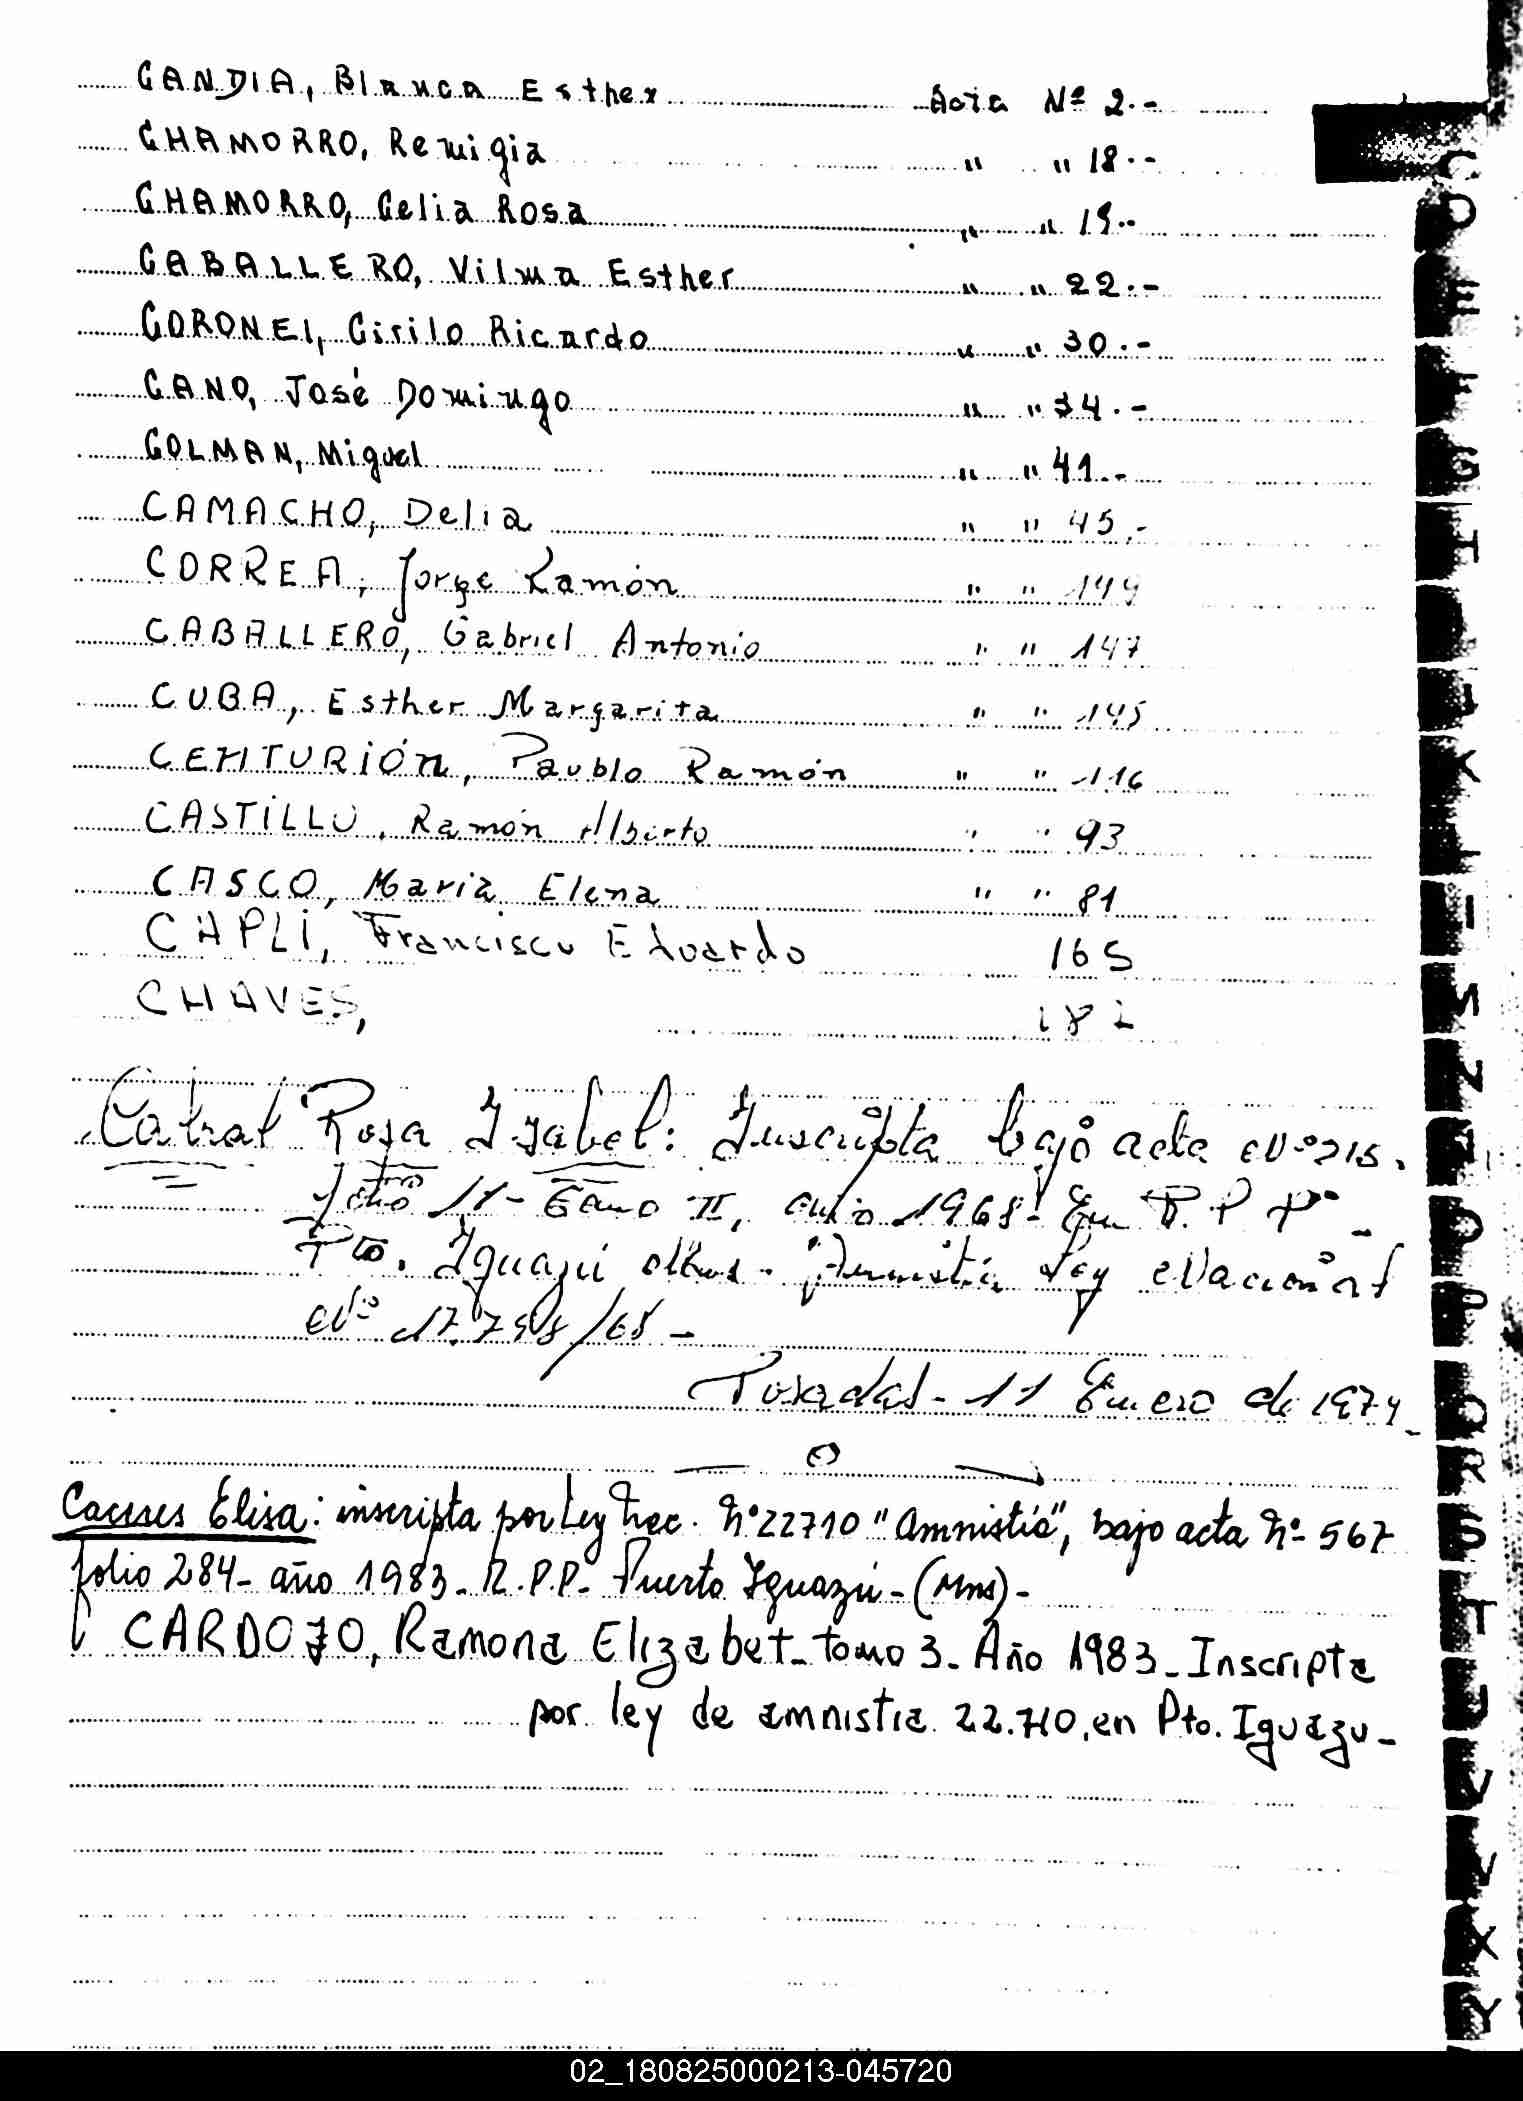 CANDIA, Blanca Esther Acta Nº 2.-
CHAMORRO, Remigia " " 18.-
CHAMORRO, Celia Rosa " " 19.-
CABALLERO, Vilma Esther " " 22.-
CORONEl, Cirilo Ricardo " " 30.-
CANO, José Domingo " " 34.-
COLMAN, Miguel " " 41.-
CAMACHO, Delia " " 45.-
CORREA, Jorge Ramón " " 149
CABALLERO, Gabriel Antonio " " 147
CUBA, Esther Margarita " " 145
CENTURIÓN, Paublo Ramón " " 116
CASTILLO, Ramón Alberto " " 93
CASCO, Maria Elena " " 81
CAPLI, Francisco Eduardo 165
CHAVES, 182
Cabral Rosa Isabel: Inscripta bajo acta Nº 215.
11- Tomo II, año 1968- En R.P.P. -
Pto. Iguazú Mnes. - Amnistía Ley Nacional
Nº 17.798/68 -
Posadas - 11 Enero de 1974-
C
D
E
F
G
H
I
J
K
L
M
N
O
P
Q
R
S
T
U
V
X
Y
Elisa: inscripta por Ley Nac. Nº 22710 "Amnistía", bajo acta Nº 567
folio 284- año 1983- R.P.P- Puerto Iguazú-(Mnes)-
CARDOZO, Ramona Elizabet- tomo 3- Año 1983- Inscripta
por ley de amnistia 22.710, en Pto. Iguazu-
02_180825000213-045720